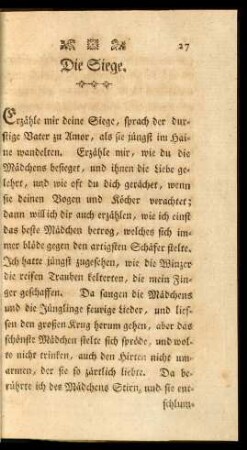 27
Die Siege.
Erzähle mir deine Siege, sprach der dur-
stige Vater zu Amor, als sie jüngst im Hai-
ne wandelten. Erzähle mir, wie du die
Mädchens besieget, und ihnen die Liebe ge-
lehret, und wie oft du dich gerächet, wenn
sie deinen Bogen und Köcher verachtet;
dann will ich dir auch erzählen, wie ich einst
das beste Mädchen betrog, welches sich im-
mer blöde gegen den artigsten Schäfer stelte.
Ich hatte jüngst zugesehen, wie die Winzer
die reifen Trauben kelterten, die mein Fin-
ger geschaffen. Da sangen die Mädchens
und die Jünglinge feurige Lieder, und lies-
sen den großen Krug herum gehen, aber das
schönste Mädchen stelte sich spröde, und wol-
te nicht trinken, auch den Hirten nicht um-
armen, der sie so zärtlich liebte. Da be-
rührte ich des Mädchens Stirn, und sie ent-
schlum-